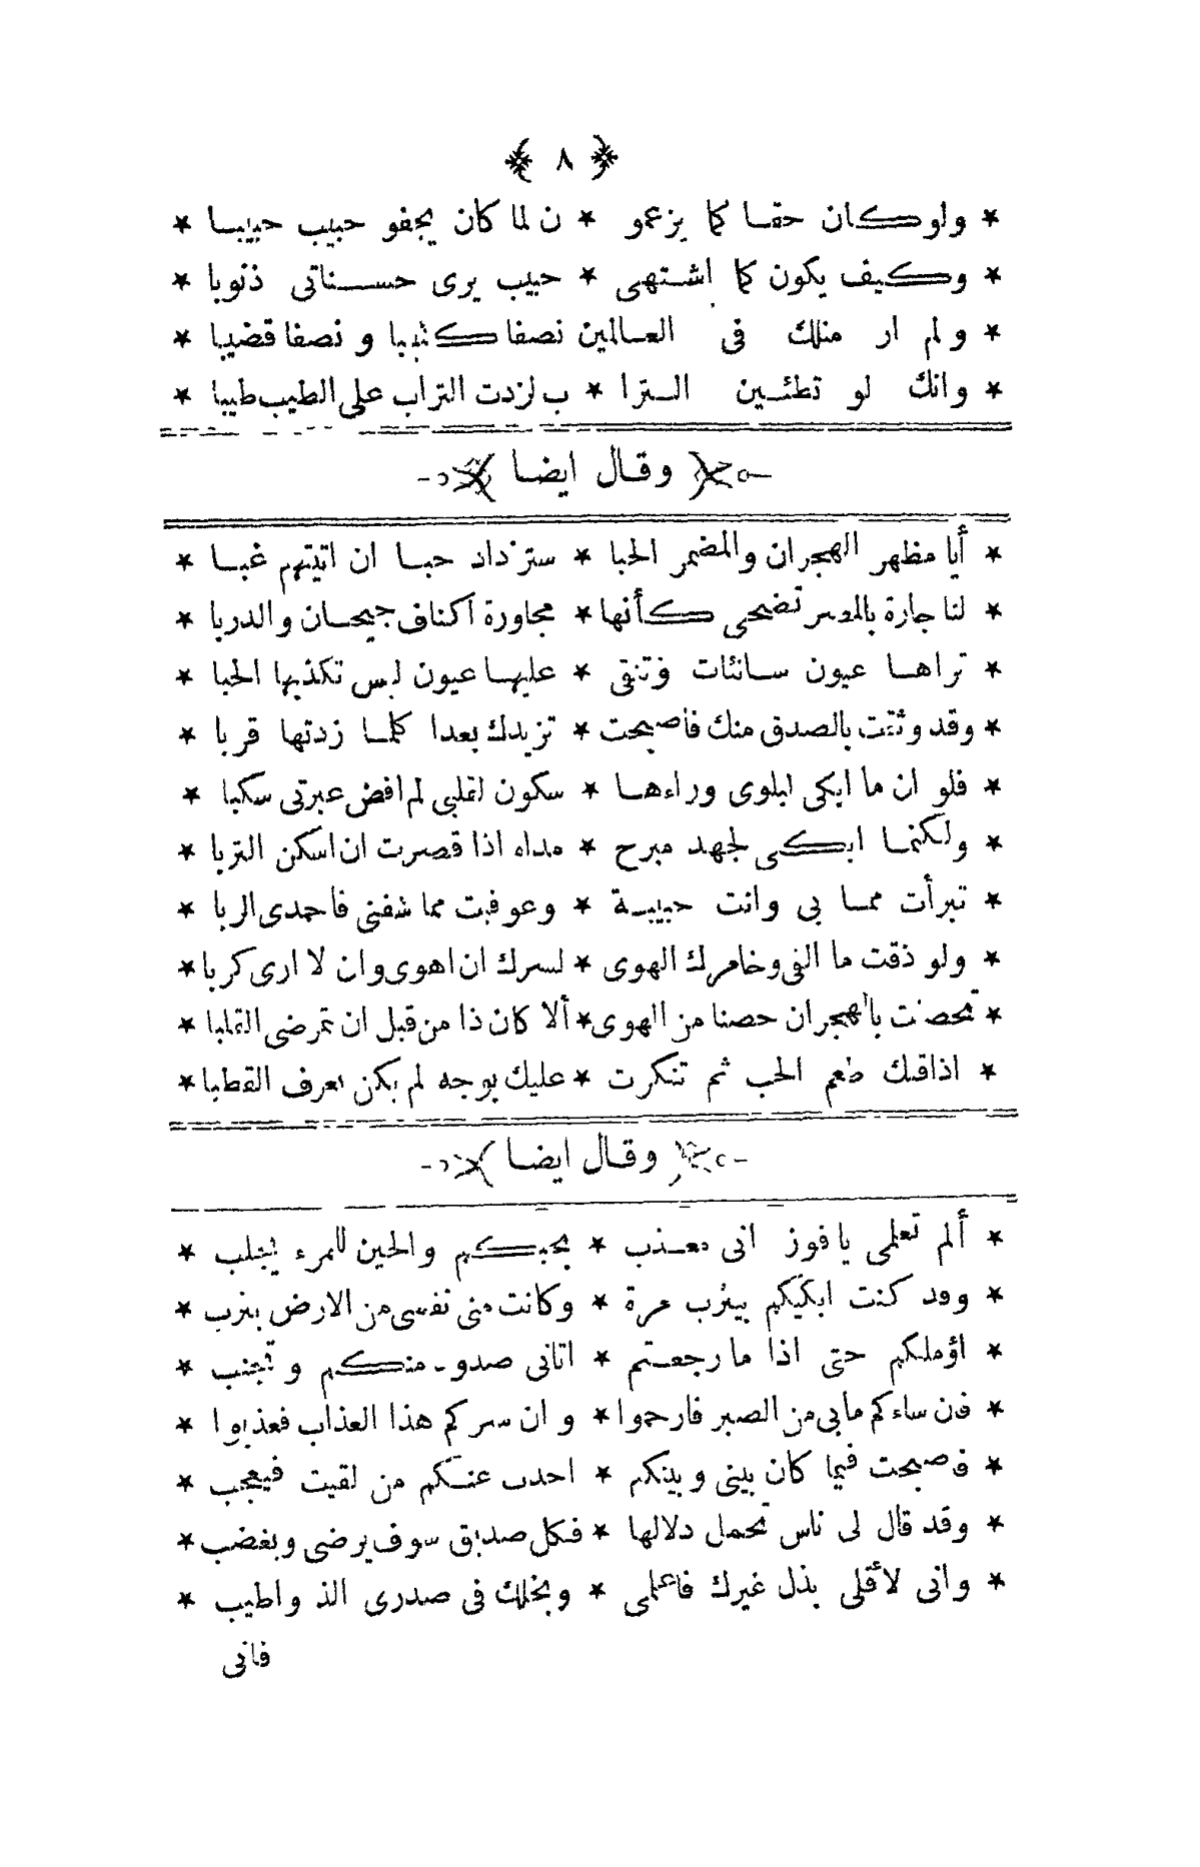 ﴿ ٨ ﴾
* ولو كان حقا كما يزعمو * ن لما كان يجفو حبيب حبيبا *
* وكيف يكون كما اشتهى * حبيب يرى حسناتى ذنوبا *
* ولم ار مثلك فى العالمين نصفا كثيبا و نصفا قضيبا *
* وانك لو تطئين الترا * ب لزدت التراب على الطيب طيبا *
وقال ايضا
* أيا مظهر الهجران والمضمر الحبا * ستزداد حبا ان اتيتهم غبا *
* لنا جارة بالمصر تضحى كأنها * مجاورة اكناف جيحان والدربا *
* تراها عيون شانئات وتتقى * عليها عيون ليس تكذبها الحبا *
* وقد وثقت بالصدق منك فاصبحت * تزيدك بعدا كلما زدتها قربا *
* فلو ان ما ابكى لبلوى وراءها * سكون لقلبى لم افض عبرتى سكبا *
* ولكنما ابكى لجهد مبرح * مداه اذا قصرت ان اسكن التربا *
* تبرأت مما بى وانت حبيبة * وعوفيت مما شفنى فاحمدى الربا *
* ولو ذقت ما القى وخامرك الهوى * لسرك ان اهوى وان لا ارى كربا *
* تحصنت بالهجران حصنا من الهوى * ألا كان ذا من قبل ان تمرضى القلبا *
* اذاقك طعم الحب ثم تنكرت * عليك بوجه لم يكن يعرف القطبا *
وقال ايضا
* ألم تعلمى يا فوز انى معذب * بحبكم والحين للمرء يجلب *
* وقد كنت ابكيكم بيثرب مرة * وكانت منى نفسى من الارض يثرب *
* اؤملكم حتى اذا ما رجعتم * اتانى صدود منكم وتجنب *
* فان ساءكم مابى من الصبر فارحموا * وان سركم هذا العذاب فعذبوا *
* فاصبحت فيما كان بينى وبينكم * احدث عنكم من لقيت فيعجب *
* وقد قال لى ناس تحمل دلالها * فكل صديق سوف يرضى ويغضب *
* وانى لأقلى بذل غيرك فاعلمى * وبخلك فى صدرى الذ واطيب *
فانى